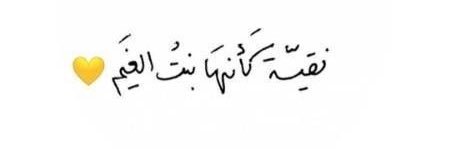 نقيّة كَأنهَا بنتُ الغيَم 💛